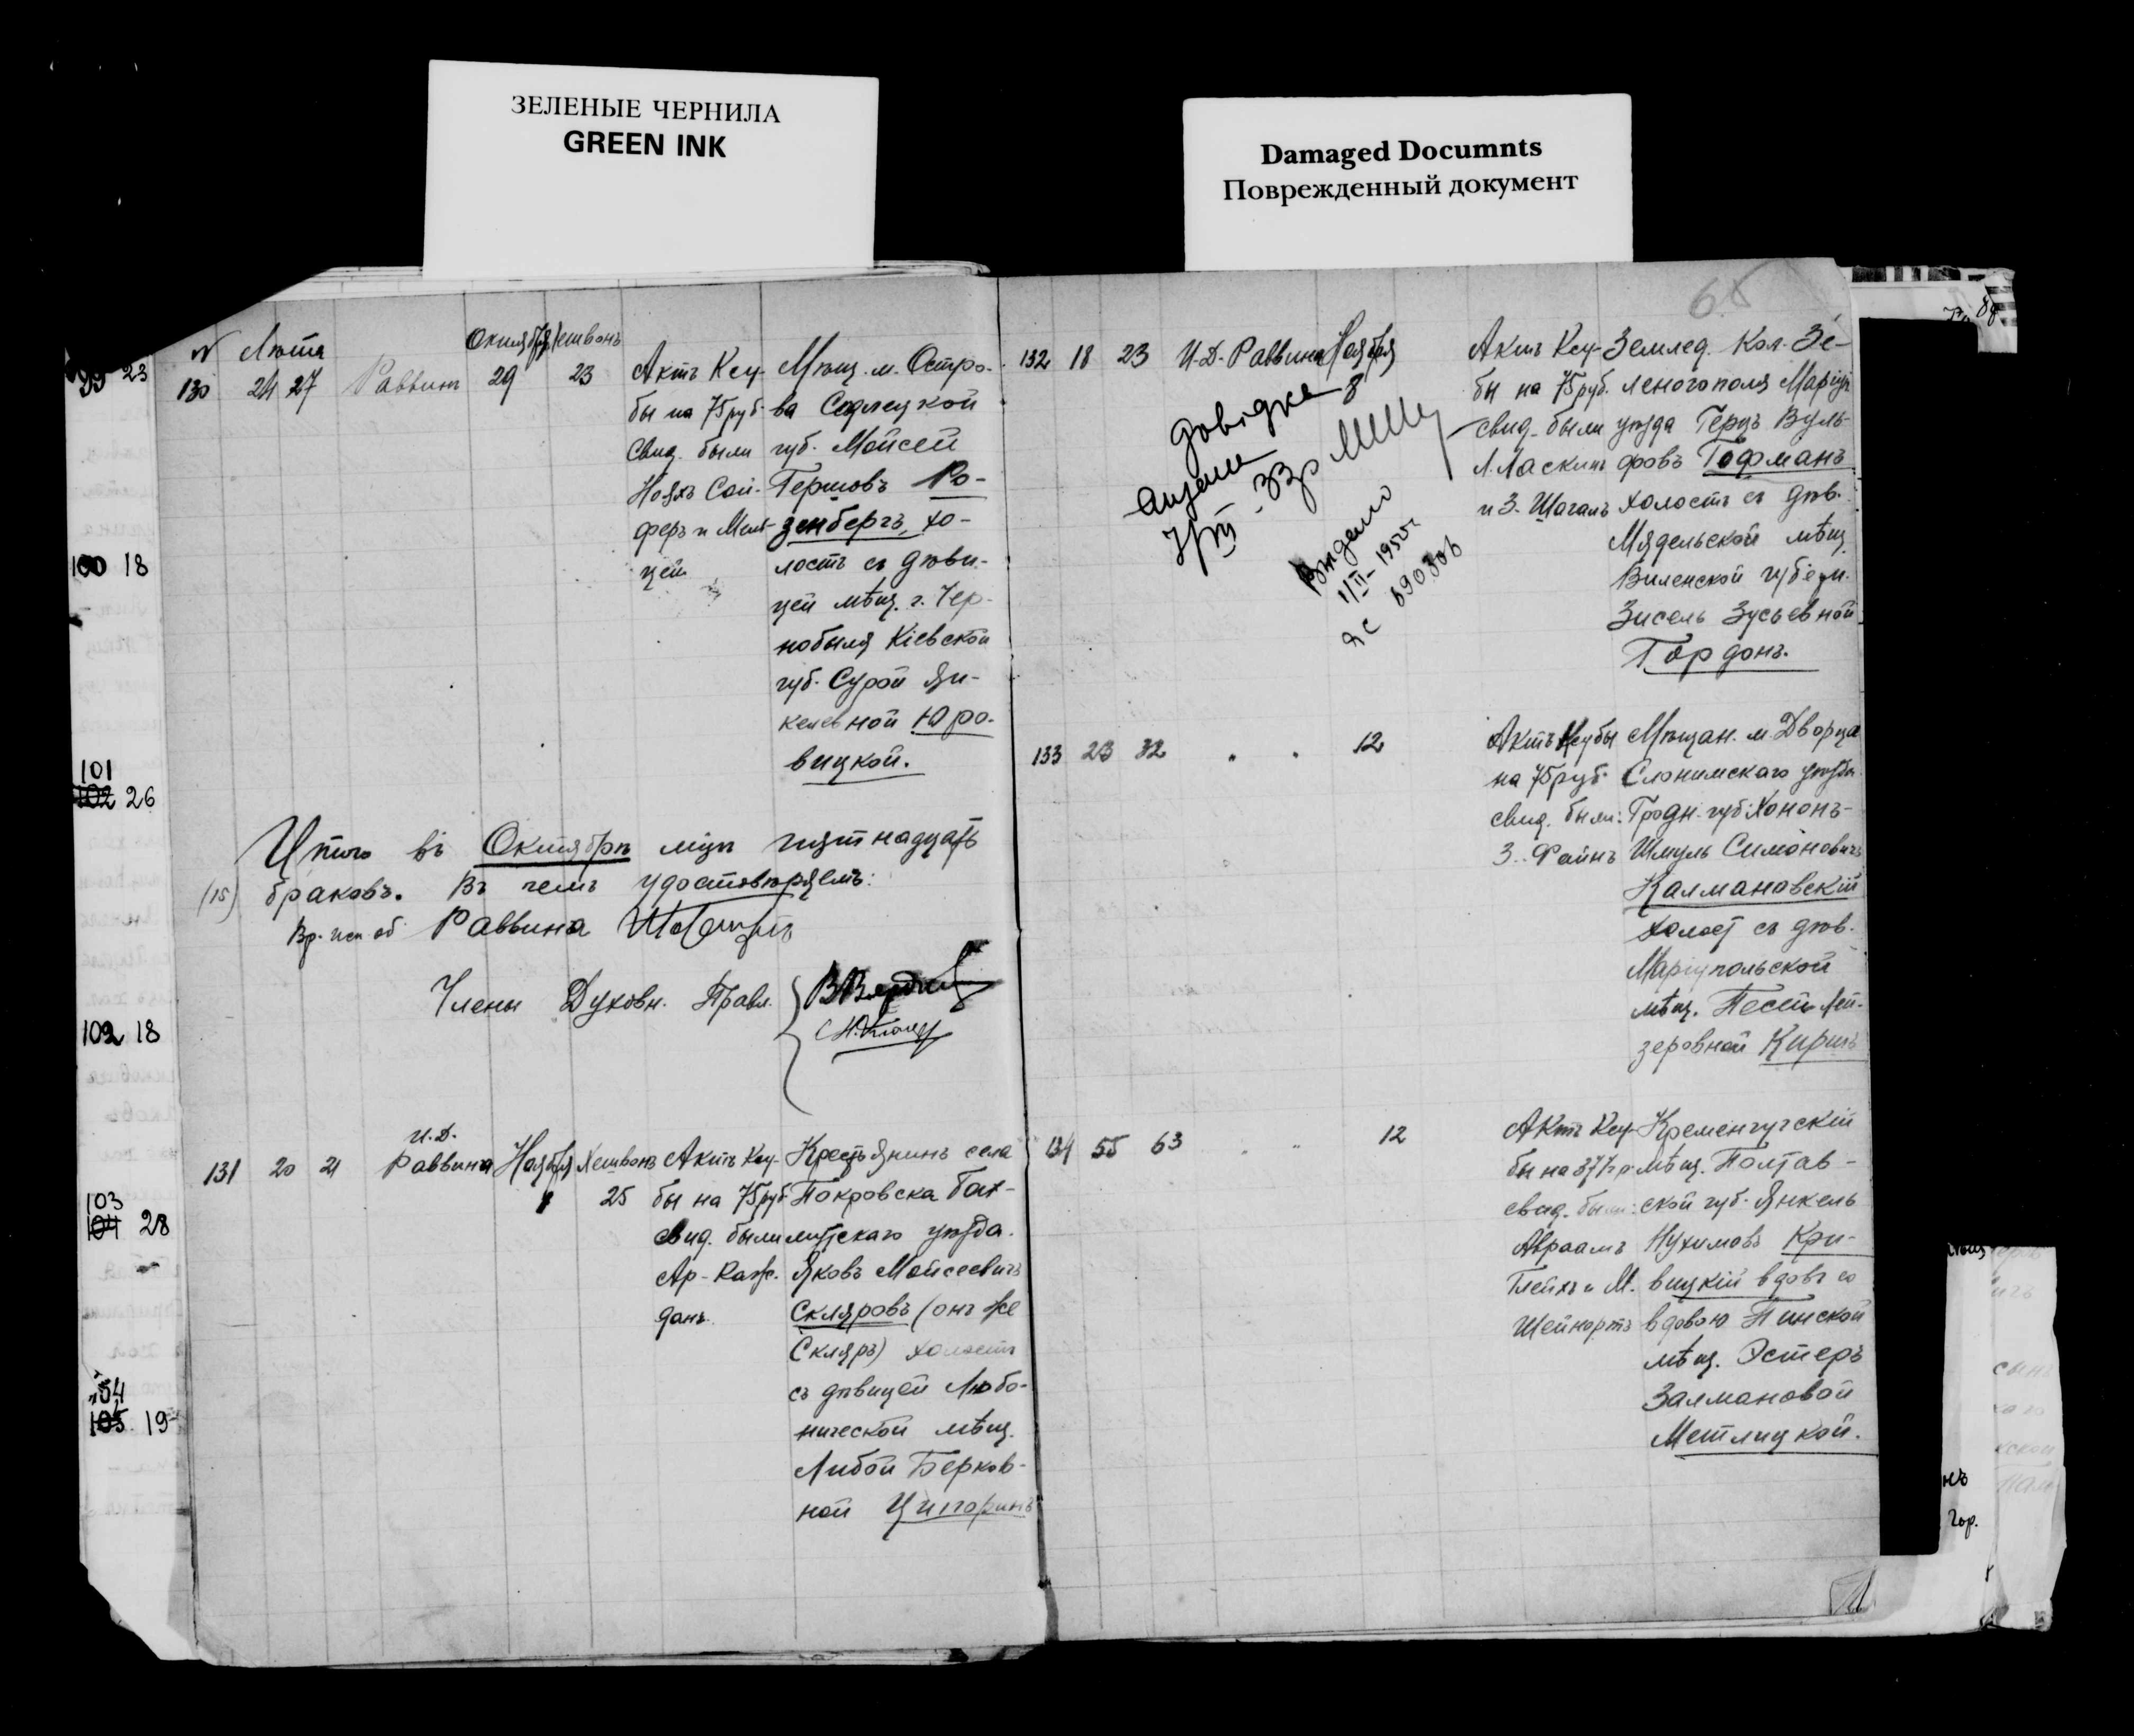 ЗЕЛЕНЫЕ ЧЕРНИЛА
GREEN INK
Damaged Documnts
Поврежденный документ
23
100 18
101
102 26
102 18
103
104 28
105 19
№ Лѣта
Октября Хешвонъ
130 24 27 Раввинъ 29 23
Актъ Ксу-
бы на 75 руб.
Свид. были
Ноахъ Сой-
феръ и Мел-
цей
Мѣщ. м. Остро-
ва Седлецкой
губ. Мойсей
Гершовъ Ро-
зенбергъ, хо-
лостъ съ дѣви-
цей мѣщ. г. Чер-
нобыля Кіевской
губ. Сурой Ян-
келевной Юро-
вицкой.
Итого въ Октябрѣ мцѣ пятнадцать
(15) браковъ. Въ чемъ удостовѣряемъ:
Вр. исп. об. Раввина
Члены Духовн. Правл.
И.Д.
131 20 21 Раввина Ноября Хешвонъ
25
Актъ Ксу-
бы на 75 руб.
свид. были
Ар-
данъ
Крестьянинъ села
Покровска Бах-
мутскаго уѣзда.
Яковъ Мойсеевичъ
Скляровъ (онъ же
Скляръ) холостъ
съ дѣвицей Любо-
нической мѣщ.
Либой Берков-
ной Цигоринъ
65
132 18 23 И.Д. Раввина Ноября
8
Довідка
Видано
1/II-1955г.
Актъ Ксу-
бы на 75 руб.
свид. были
Л. Ласкинъ
и З. Шагалъ
Землед. Кол. Зе-
леногополя Маріуп.
уѣзда Герцъ Вуль-
фовъ Гофманъ
холостъ съ дѣв.
Мядельской мѣщ.
Виленской губерн.
Зисель Зусьевной
Гордонъ.
133 23 32 " " 12
Актъ Ксубы
на 75 руб.
свид. были:
З. Файнъ
Мѣщан. м. Дворца
Слонимскаго уѣзда
Гродн. губ. Хононъ-
Шмуль Симоновичъ
Калмановскій
холост съ дѣв.
Маріупольской
мѣщ. Песей Лей-
зеровной Киршъ
134 55 63 " " 12
Актъ Ксу-
бы на 37½ р.
свид. были:
Авраамъ
Глейхъ и М.
Шейнортъ
Кременчугскій
мѣщ. Полтав-
ской губ. Янкель
Нухимовъ Кри-
вицкій вдовъ со
вдовою Пинской
мѣщ. Эстеръ
Залмановой
Метлицкой.
нъ
Гор.